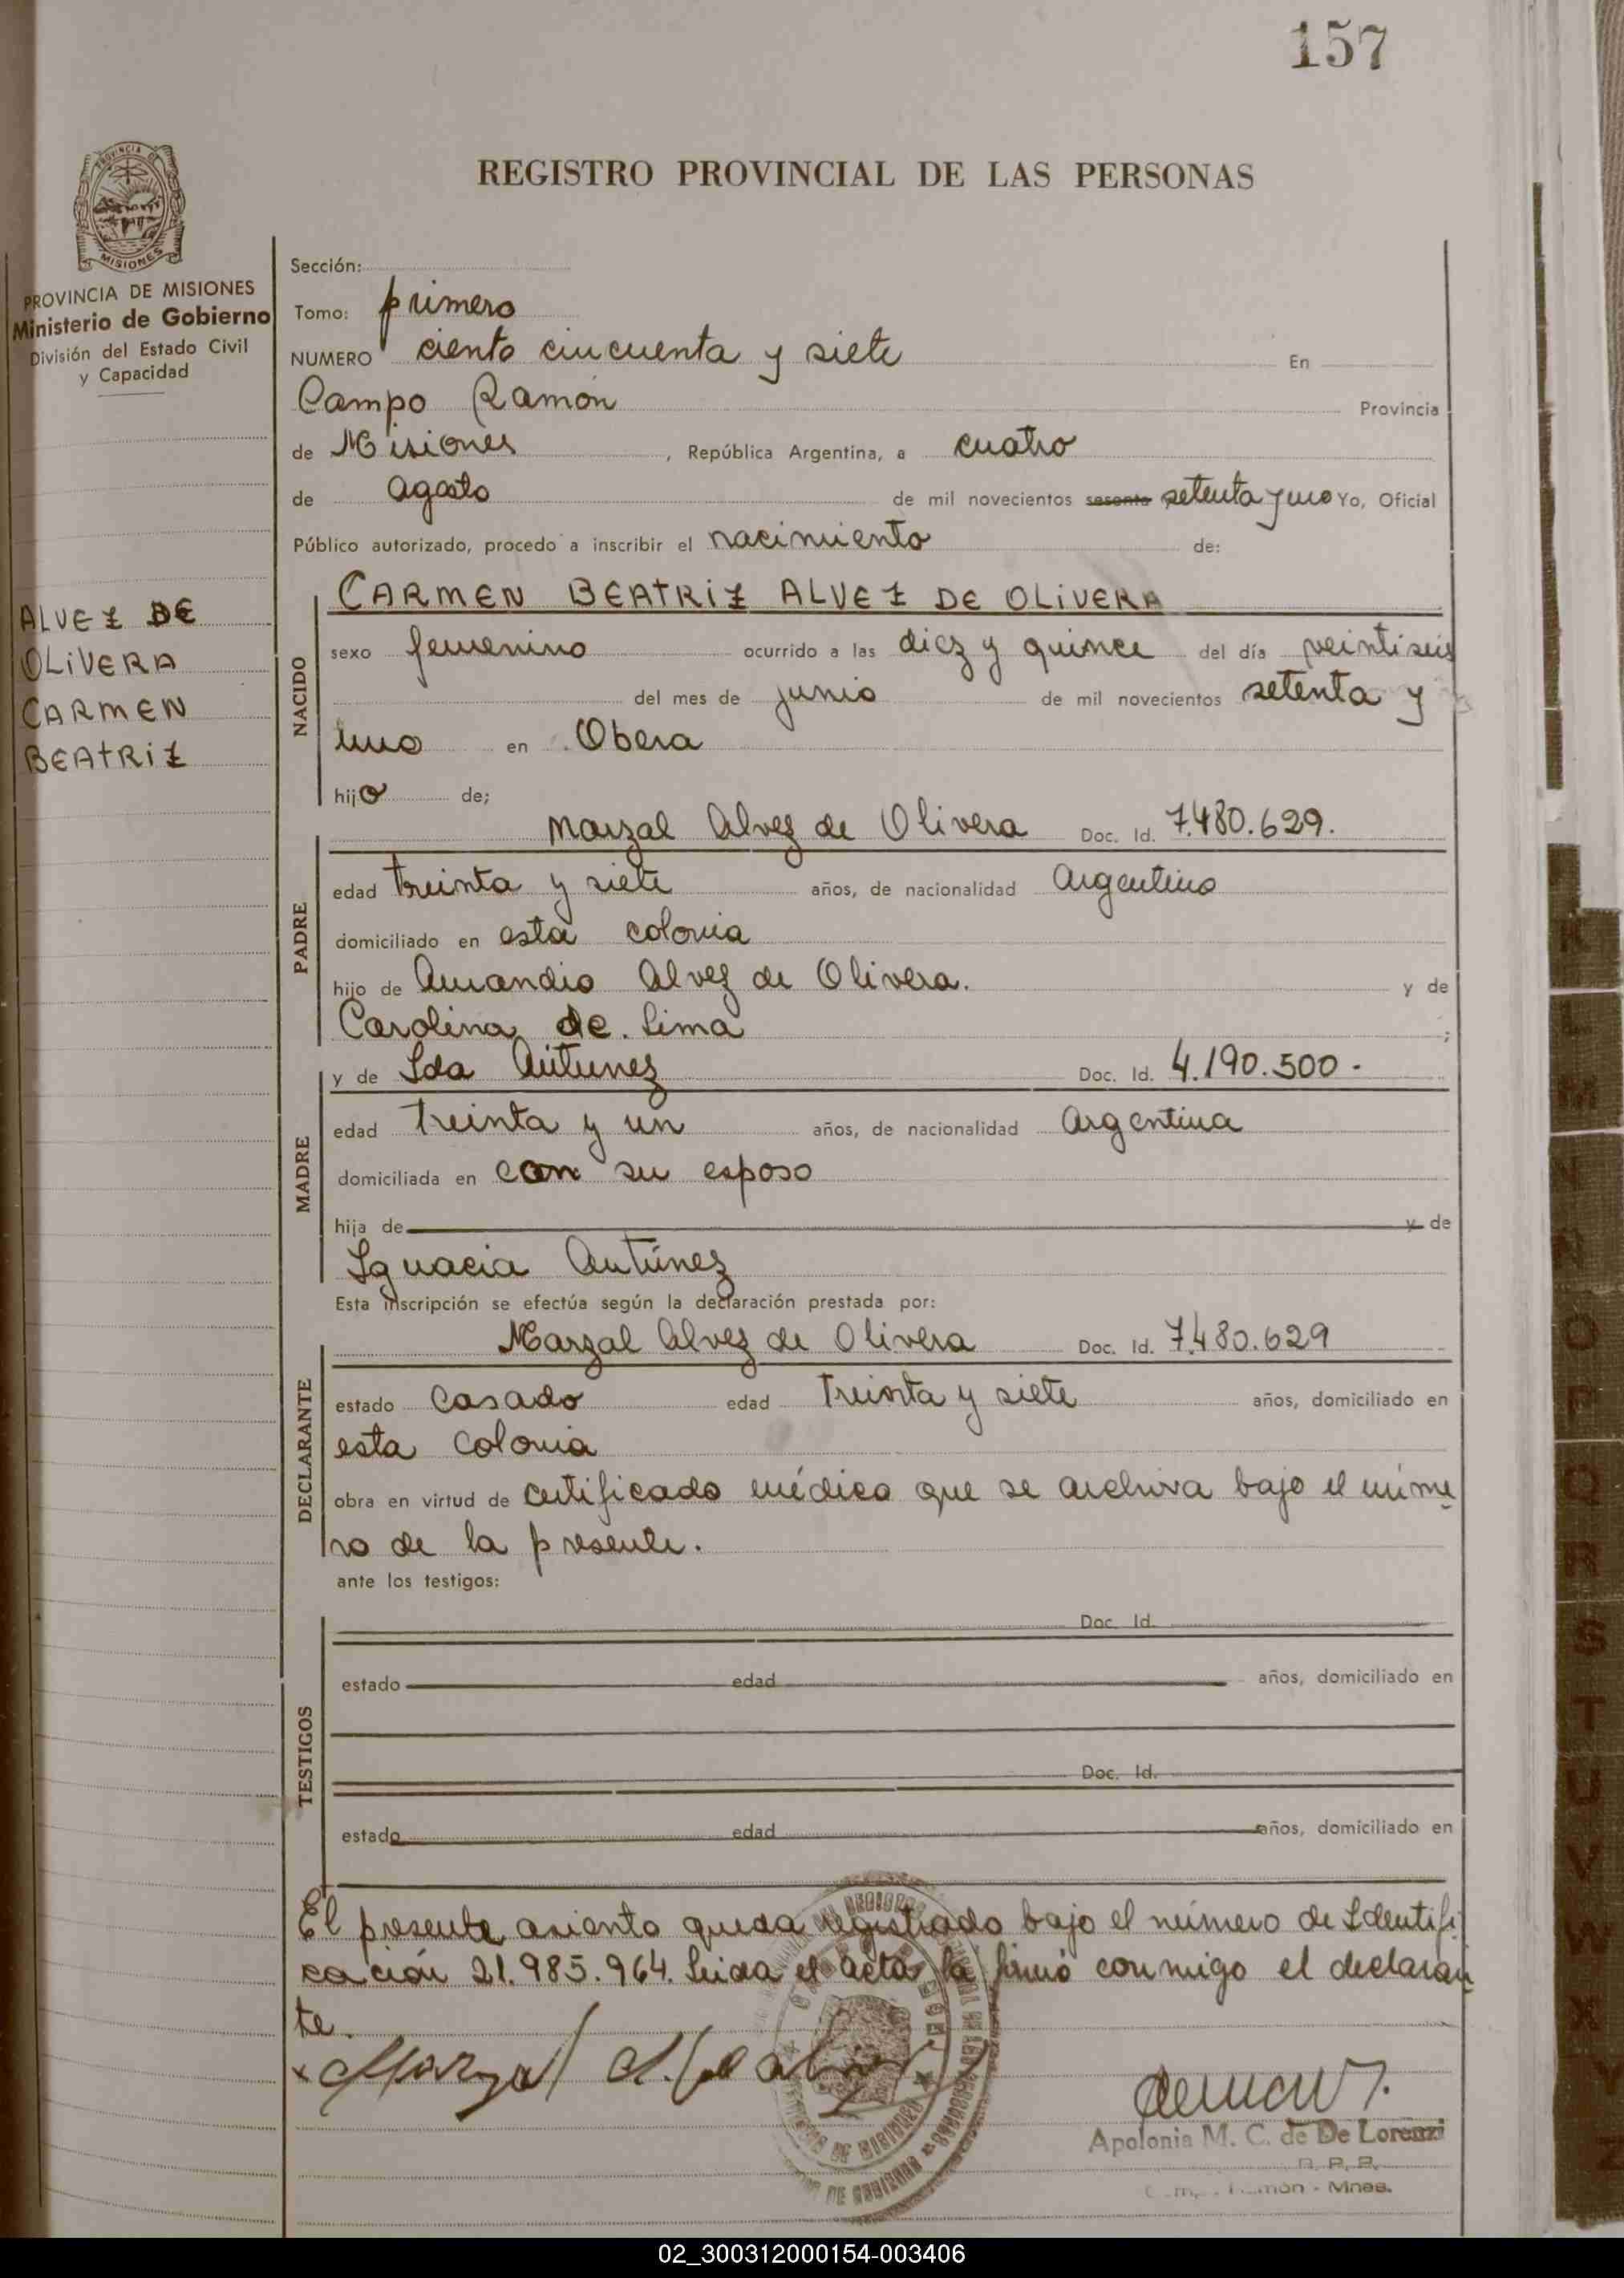 157
REGISTRO PROVINCIAL DE LAS PERSONAS
PROVINCIA DE MISIONES
Ministerio de Gobierno
División del Estado Civil
y Capacidad
ALVEZ DE
OLIVERA
CARMEN
BEATRIZ
Sección:
Tomo: primero
NUMERO ciento cincuenta y siete En
Campo Ramón Provincia
de Misiones, República Argentina, a cuatro
de agosto de mil novecientos sesenta setenta y uno Yo, Oficial
Público autorizado, procedo a inscribir el nacimiento de:
NACIDO
CARMEN BEATRIZ ALVEZ DE OLIVERA
sexo femenino ocurrido a las diez y quince del día veintiseis
del mes de junio de mil novecientos setenta y
uno en Obera
hijo de;
PADRE
Marzal Alvez de Olivera Doc. Id. 7.480.629.
edad treinta y siete años, de nacionalidad Argentino
domiciliado en esta colonia
hijo de Amandio Alvez de Olivera. y de
Carolina de Lima ;
MADRE
y de Ida Antunez Doc. Id. 4.190.500 -
edad treinta y un años, de nacionalidad Argentina
domiciliada en con su esposo
hija de y de
Ignacia Antúnez
Esta inscripción se efectúa según la declaración prestada por:
DECLARANTE
Marzal Alvez de Olivera Doc. Id. 7.480.629
estado casado edad treinta y siete años, domiciliado en
esta colonia
obra en virtud de certificado médico que se archiva bajo el núme
ro de la presente.
ante los testigos:
TESTIGOS
Doc. Id.
estado edad años, domiciliado en
Doc. Id.
estado edad años, domiciliado en
El presente asiento queda registrado bajo el número de Identifi
cación 21.985.964. Leida el acta la firmó conmigo el declaran
te.
Apolonia M. C. de De Lorenzi
02_300312000154-003406